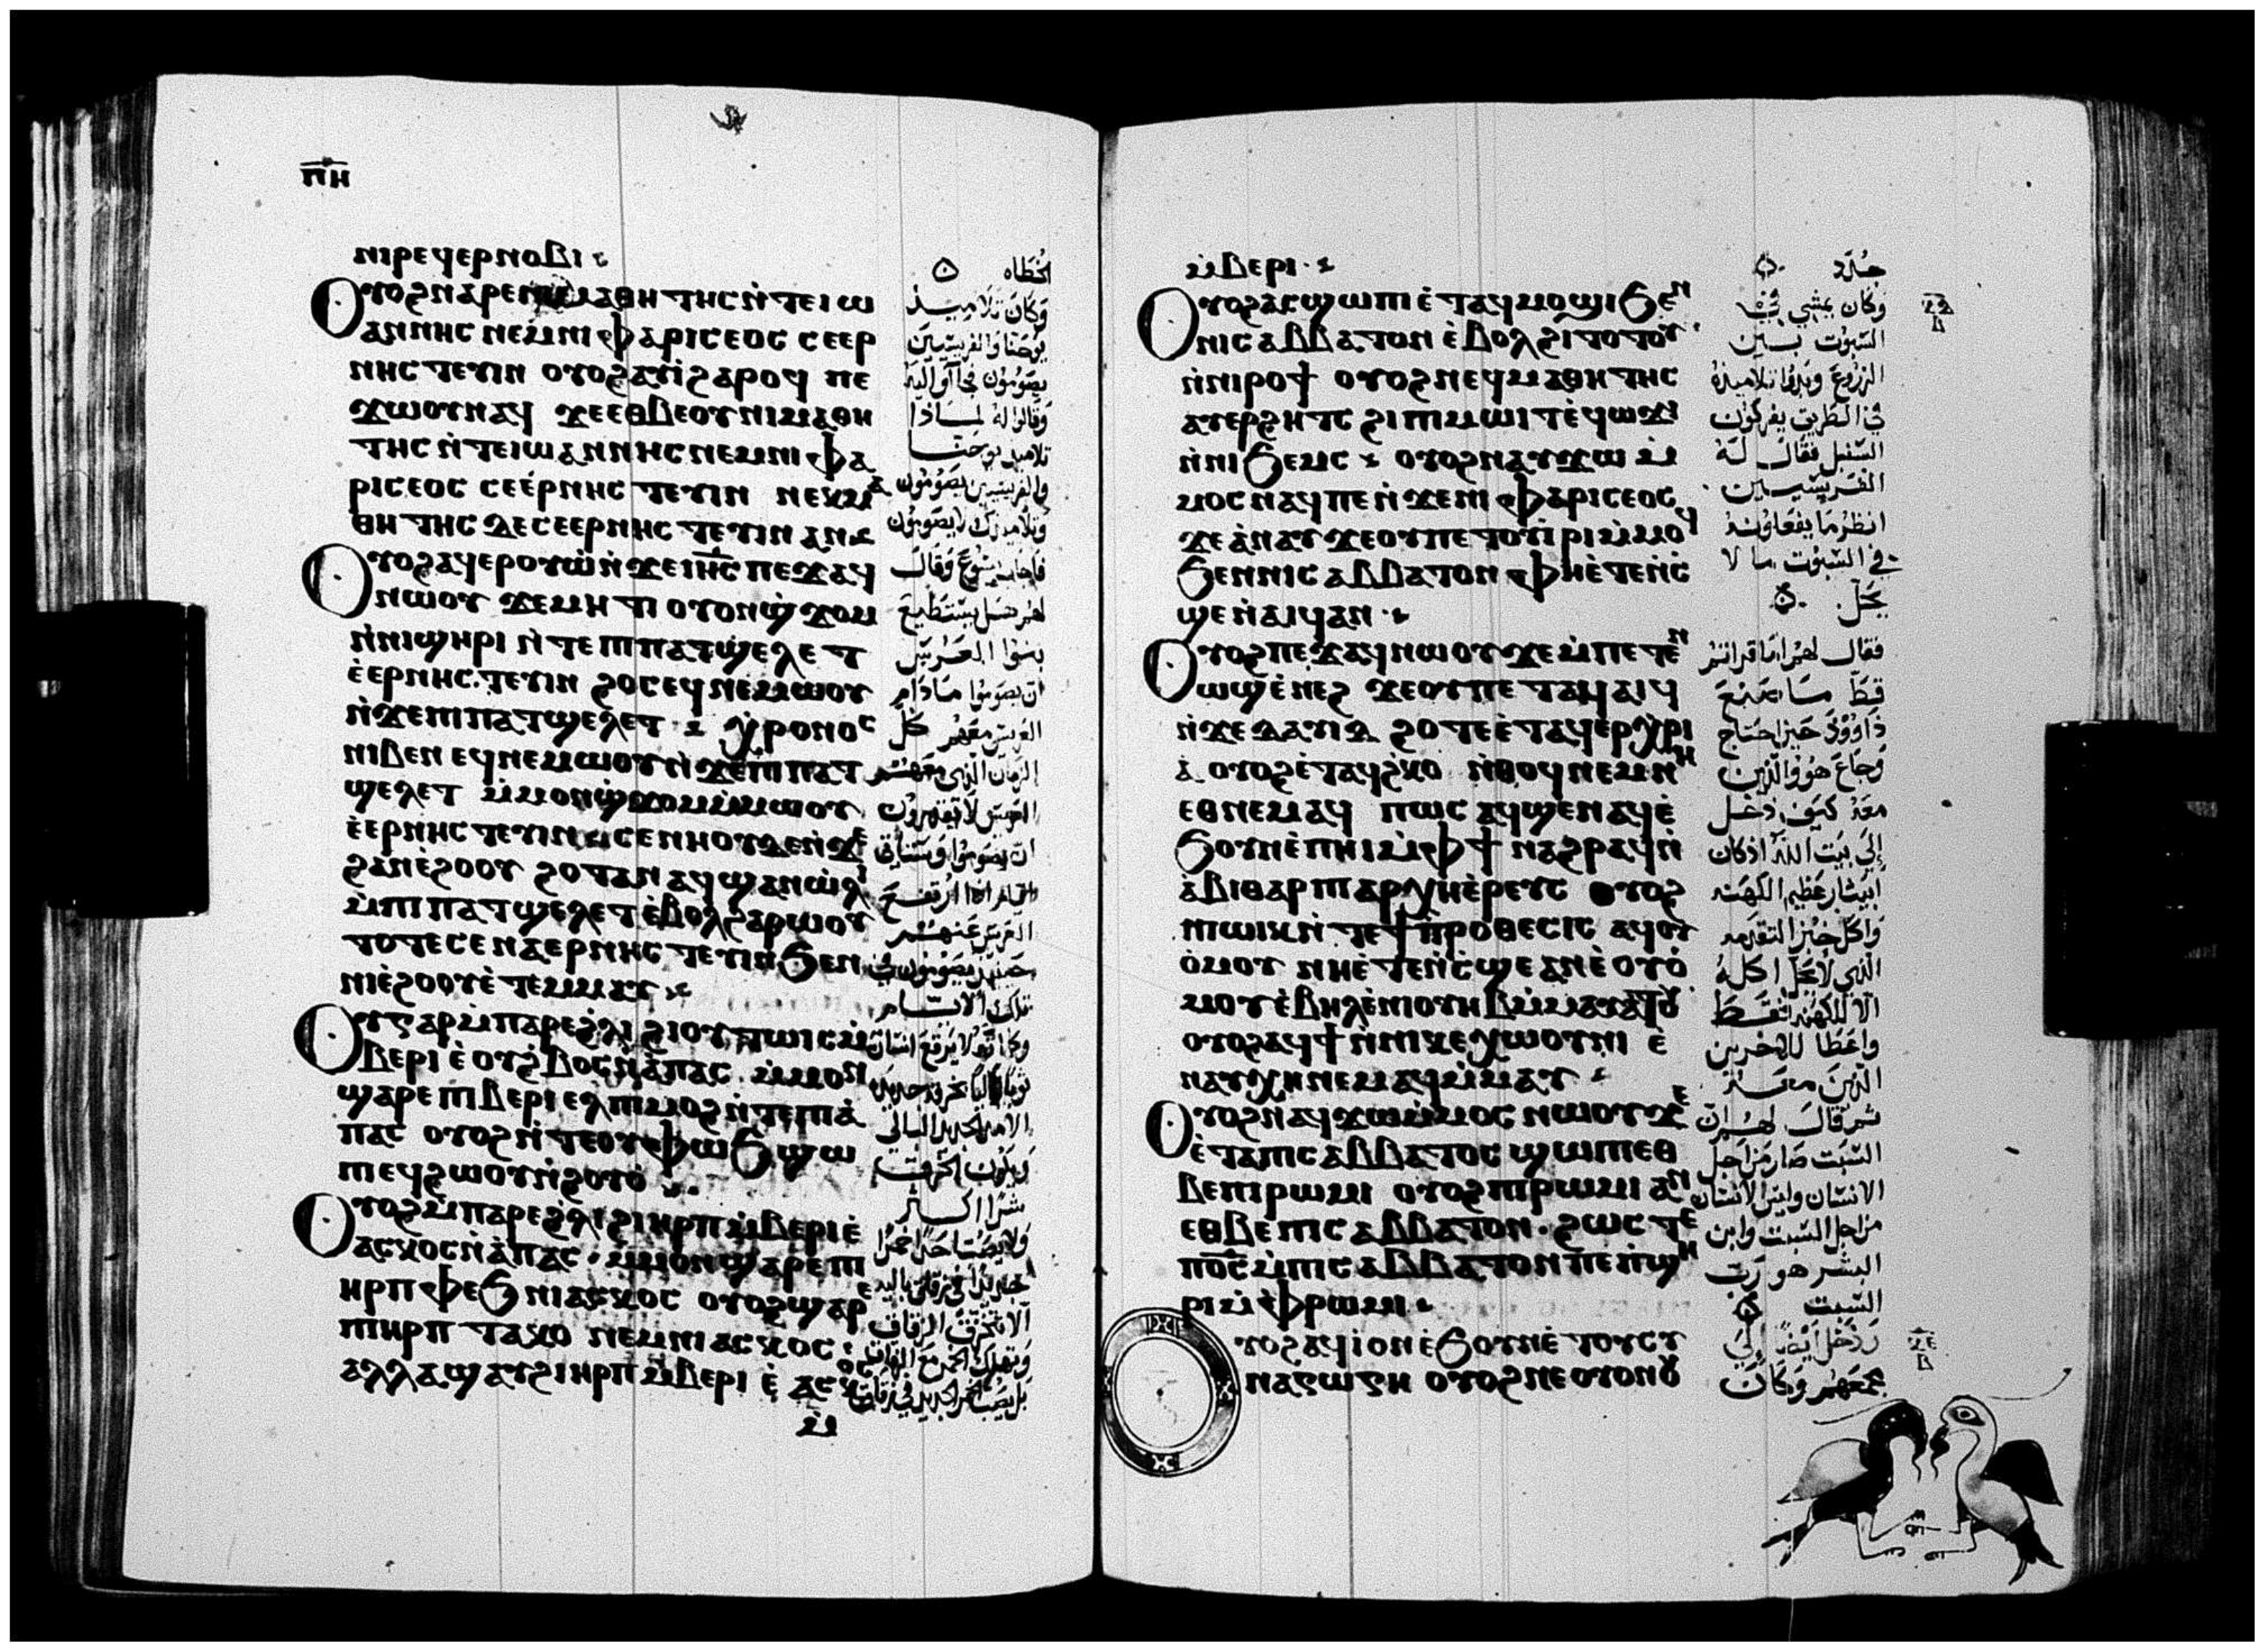 ⲡⲏ
ⲛⲓⲣⲉϥⲉⲣⲛⲟⲃⲓ
ⲟⲩⲟϩ ⲛⲁⲣⲉ ⲛⲓⲙⲁⲑⲏⲧⲏⲥ ⲛ̀ⲧⲉ ⲓⲱ
ⲁⲛⲛⲏⲥ ⲛⲉⲙ ⲛⲓⲫⲁⲣⲓⲥⲉⲟⲥ ⲥⲉⲉⲣ
ⲛⲏⲥⲧⲉⲩⲓⲛ ⲟⲩⲟϩ ⲁⲩⲓ̀ ϩⲁⲣⲟϥ ⲡⲉ
ϫⲱⲟⲩ ⲛⲁϥ ϫⲉ ⲉⲑⲃⲉⲟⲩ ⲛⲓⲙⲁⲑⲏ
ⲧⲏⲥ ⲛ̀ⲧⲉ ⲓⲱⲁⲛⲛⲏⲥ ⲛⲉⲙ ⲛⲓⲫⲁ
ⲣⲓⲥⲉⲟⲥ ⲥⲉⲉ̀ⲣⲛⲏⲥⲧⲉⲩⲓⲛ ⲛⲉⲕⲙⲁ
ⲑⲏⲧⲏⲥ ⲇⲉ ⲥⲉⲉⲣⲛⲏⲥⲧⲉⲩⲓⲛ ⲁⲛ
ⲟⲩⲟϩ ⲁϥⲉⲣⲟⲩⲱ̀ ⲛ̀ϫⲉ ⲓⲏⲥ ⲡⲉϫⲁϥ
ⲛⲱⲟⲩ ϫⲉ ⲙⲏⲧⲓ ⲟⲩⲟⲛ ϣ̀ϫⲟⲙ
ⲛ̀ⲛⲓϣⲏⲣⲓ ⲛ̀ⲧⲉ ⲡⲓⲡⲁⲧϣⲉⲗⲉⲧ
ⲉ̀ⲉⲣⲛⲏⲥⲧⲉⲩⲓⲛ ϩⲟⲥ ⲉϥⲛⲉⲙⲱⲟⲩ
ⲛ̀ϫⲉ ⲡⲓⲡⲁⲧϣⲉⲗⲉⲧ ⲭ̀ⲣⲟⲛⲟⲥ
ⲛⲓⲃⲉⲛ ⲉϥⲛⲉⲙⲱⲟⲩ ⲛ̀ϫⲉ ⲡⲓⲡⲁⲧ
ϣⲉⲗⲉⲧ ⲙ̀ⲙⲟⲛ ϣ̀ϫⲟⲙ ⲙ̀ⲙⲱⲟⲩ
ⲉ̀ⲉⲣⲛⲏⲥⲧⲉⲩⲓⲛ ⲥⲉⲛⲏⲟⲩ ⲇⲉ ⲛ̀ϫⲉ
ϩⲁⲛⲉ̀ϩⲟⲟⲩ ϩⲟⲧⲁⲛ ⲁⲩϣⲁⲛⲱ̀ⲗⲓ
ⲙ̀ⲡⲓⲡⲁⲧϣⲉⲗⲉⲧ ⲉ̀ⲃⲟⲗ ϩⲁⲣⲱⲟⲩ
ⲧⲟⲧⲉ ⲥⲉⲛⲁⲉⲣⲛⲏⲥⲧⲉⲩⲓⲛ ϧⲉⲛ
ⲛⲓⲉ̀ϩⲟⲟⲩ ⲉ̀ⲧⲉⲙⲙⲁⲩ
ⲟⲩⲅⲁⲣ ⲙ̀ⲡⲁⲣⲉ ϩ̀ⲗⲓ ϩⲓⲟⲩⲧⲱⲓⲥ ⲙ̀
ⲃⲉⲣⲓ ⲉ̀ⲟⲩϩ̀ⲃⲟⲥ ⲛ̀ⲁ̀ⲡⲁⲥ ⲙ̀ⲙⲟⲛ
ϣⲁⲣⲉ ⲡⲓⲃⲉⲣⲓ ⲉⲗ ⲡⲓⲙⲟϩ ⲛ̀ⲧⲉ ⲡⲓⲁ̀
ⲡⲁⲥ ⲟⲩⲟϩ ⲛ̀ⲧⲉ ⲟⲩⲫⲱϧ ϣⲱ
ⲡⲓ ⲉϥϩⲱⲟⲩ ⲛ̀ϩⲟⲩⲟ̀
ⲟⲩⲟϩ ⲙ̀ⲡⲁⲣⲉ ϩ̀ⲗⲓ ϩⲓ ⲏⲣⲡ ⲙ̀ⲃⲉⲣⲓ ⲉ̀
ⲁⲥⲕⲟⲥ ⲛ̀ⲁ̀ⲡⲁⲥ ⲙ̀ⲙⲟⲛ ϣⲁⲣⲉ ⲡⲓ
ⲏⲣⲡ ⲫⲉϧ ⲛⲓⲁⲥⲕⲟⲥ ⲟⲩⲟϩ ϣⲁⲣⲉ
ⲡⲓⲏⲣⲡ ⲧⲁⲕⲟ ⲛⲉⲙ ⲛⲓⲁⲥⲕⲟⲥ
ⲁⲗⲗⲁ ϣⲁⲩϩⲓ ⲏⲣⲡ ⲙ̀ⲃⲉⲣⲓ ⲉ̀ ⲁⲥⲕⲟⲥ
ⲙ̀
الخطاه
وكان تلاميذ
يوحنا والفريسيين
يصومون فجآوا اليه
وقالوا له لماذا
تلاميذ يوحنا
والفريسيين يصومون
وتلاميذك لا يصومون
فاجاب يسوع وقال
لهم هل يستطيع
بنوا العريس
ان يصوموا مادام
العريس معهم كل
الزمان الذي معهم
العريس لا يقدرون
ان يصوموا وستاتي
ايام اذا ارتفع
العريس عنهم
حينيذ يصومون في
تلك الايام
ⲙ̀ⲃⲉⲣⲓ
ⲟⲩⲟϩ ⲁⲥϣⲱⲡⲓ ⲉ̀ⲧⲁϥⲙⲟϣⲓ ϧⲉⲛ
ⲛⲓⲥⲁⲃⲃⲁⲧⲟⲛ ⲉ̀ⲃⲟⲗ ϩⲓⲧⲟⲧⲟⲩ
ⲛ̀ⲛⲓⲣⲟϯ ⲟⲩⲟϩ ⲛⲉϥⲙⲁⲑⲏⲧⲏⲥ
ⲁⲩⲉⲣϩⲏⲧⲥ ϩⲓ ⲡⲓⲙⲱⲓⲧ ⲉ̀ϥⲱϫⲓ
ⲛ̀ⲛⲓϧⲉⲙⲥ ⲟⲩⲟϩ ⲛⲁⲩϫⲱ ⲙ̀
ⲙⲟⲥ ⲛⲁϥ ⲡⲉ ⲛ̀ϫⲉ ⲛⲓⲫⲁⲣⲓⲥⲉⲟⲥ
ϫⲉ ⲁ̀ⲛⲁⲩ ϫⲉ ⲟⲩⲡⲉⲧⲟⲩⲓ̀ⲣⲓ ⲙ̀ⲙⲟϥ
ϧⲉⲛ ⲛⲓⲥⲁⲃⲃⲁⲧⲟⲛ ⲫⲏ ⲉ̀ⲧⲉⲛ̀ⲥ̀
ϣⲉ ⲛ̀ⲁⲓϥ ⲁⲛ
ⲟⲩⲟϩ ⲡⲉϫⲁϥ ⲛⲱⲟⲩ ϫⲉ ⲙ̀ⲡⲉⲧⲉⲛ
ⲱϣ ⲉ̀ⲛⲉϩ ϫⲉ ⲟⲩⲡⲉⲧⲁϥⲁⲓϥ
ⲛ̀ϫⲉ ⲇⲁⲩⲓⲇ ϩⲟⲧⲉ ⲉ̀ⲧⲁϥⲉⲣⲭ̀ⲣⲓ
ⲁ̀ ⲟⲩⲟϩ ⲉ̀ⲧⲁϥϩ̀ⲕⲟ ⲛ̀ⲑⲟϥ ⲛⲉⲙ ⲛⲏ
ⲉⲑⲛⲉⲙⲁϥ ⲡⲱⲥ ⲁϥϣⲉⲛⲁϥ ⲉ̀
ϧⲟⲩⲛ ⲉ̀ⲡⲏⲓ ⲙ̀ⲫϯ ⲛⲁϩⲣⲁϥ ⲛ̀
ⲁ̀ⲃⲓⲑⲁⲣ ⲡⲓⲁⲣⲭⲏⲉ̀ⲣⲉⲩⲥ ⲟⲩⲟϩ
ⲛⲓⲱⲓⲕ ⲛ̀ⲧⲉ ϯⲡ̀ⲣⲟⲑⲉⲥⲓⲥ ⲁϥⲟⲩ
ⲟ̀ⲙⲟⲩ ⲛⲏ ⲉ̀ⲧⲉⲛ̀ⲥ̀ϣⲉ ⲁⲛ ⲉ̀ⲟⲩⲟ̀
ⲙⲟⲩ ⲉ̀ⲃⲏⲗ ⲉ̀ⲛⲓⲟⲩⲏⲃ ⲙ̀ⲙⲁⲩⲁⲧⲟⲩ
ⲟⲩⲟϩ ⲁϥϯ ⲛ̀ⲛⲓⲕⲉⲭⲱⲟⲩⲛⲓ ⲉ̀
ⲛⲁⲩⲭⲏ ⲛⲉⲙⲁϥ ⲙ̀ⲙⲁⲩ
ⲟⲩⲟϩ ⲛⲁϥϫⲱ ⲙ̀ⲙⲟⲥ ⲛⲱⲟⲩ ϫⲉ
ⲉ̀ⲧⲁ ⲡⲓⲥⲁⲃⲃⲁⲧⲟⲥ ϣⲱⲡⲓ ⲉⲑ
ⲃⲉ ⲡⲓⲣⲱⲙⲓ ⲟⲩⲟϩ ⲡⲓⲣⲱⲙⲓ ⲁⲛ
ⲉⲑⲃⲉ ⲡⲓⲥⲁⲃⲃⲁⲧⲟⲛ ϩⲱⲥⲧⲉ
ⲡⲟⲥ ⲙ̀ⲡⲓⲥⲁⲃⲃⲁⲧⲟⲛ ⲡⲉ ⲡ̀ϣⲏ
ⲣⲓ ⲙ̀ⲫⲣⲱⲙⲓ
ⲟⲩⲟϩ ⲁϥⲓ̀ ⲟⲛ ⲉ̀ϧⲟⲩⲛ ⲉ̀ⲧⲟⲩⲥⲩ
ⲛⲁⲅⲱⲅⲏ ⲟⲩⲟϩ ⲛⲉ ⲟⲩⲟⲛ ⲟⲩ
جدد
وكان يمشي في
السبوت بين
الزروع وبدوا تلاميذه
في الطريق يفركون
السنبل فقال له
الفريسيين
انظر ما يفعلونه
في السبوت ما لا
يحل
فقال لهم اما قراتم
قط ما صنع
داوود حين احتاج
وجاع هو والذين
معه كيف دخل
الي بيت الله اذ كان
ابيثار عظيم الكهنه
واكل خبز التقدمه
الذي لا يحل اكله
الا للكهنه فقط
واعطا للاخرين
الذين معه
ثم قال لهم ان
السبت صار من اجل
الانسان وليس الانسان
من اجل السبت وابن
البشر هو رب
السبت
ودخل ايضا الي
مجمعهم وكان